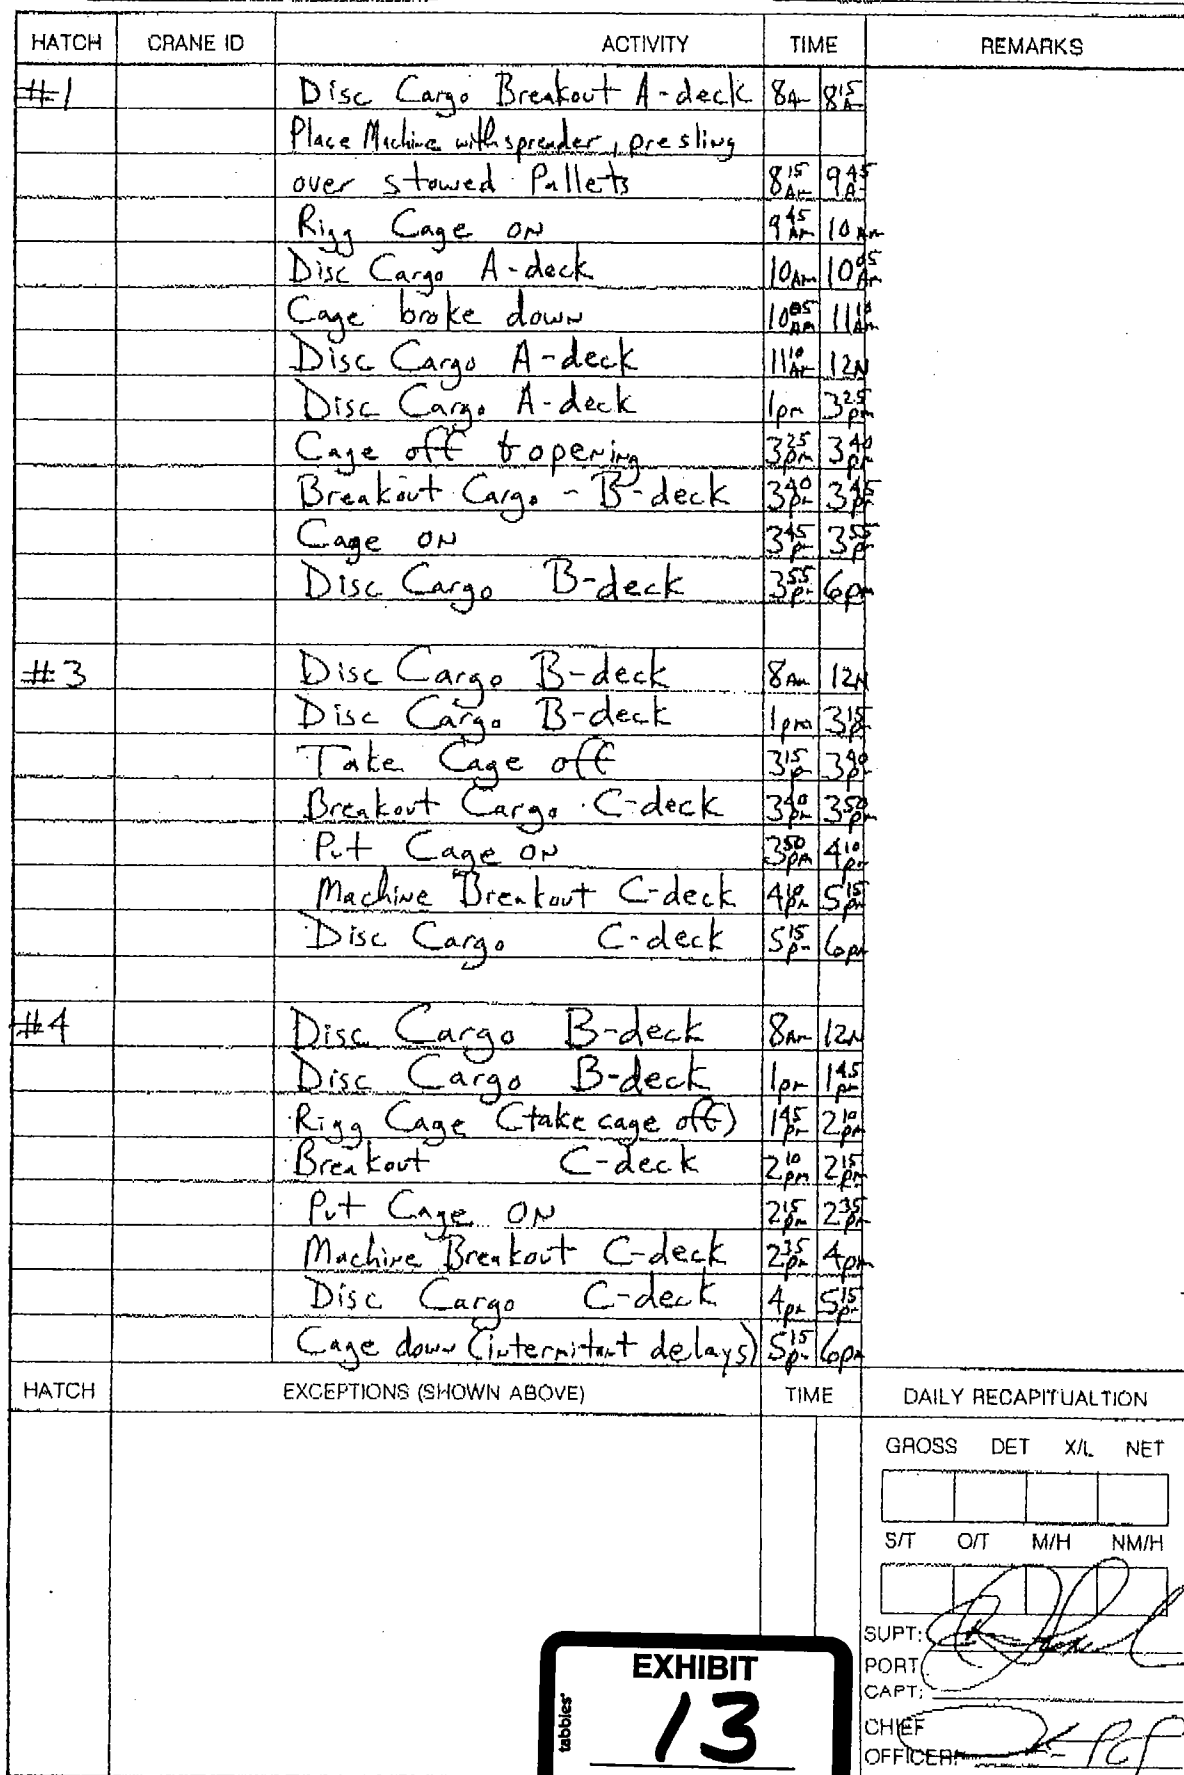 HATCH CRANE ID ACTIVITY TIME REMARKS
#1 Disc Cargo Breakout A-deck 8A 8 15 A
Place Machine with spreader, pre sling
over stowed Pallets 8 15 Am 9 45 A
Rigg Cage ON 9 45 Am 10 Am
Disc Cargo A-deck 10 Am 10 05 Am
Cage broke down 10 05 AM 11 10 Am
Disc Cargo A-deck 11 10 Am 12N
Disc Cargo A-deck 1pm 3 25 pm
Cage off & opening 3 25 pm 3 40 pm
Breakout Cargo - B-deck 3 40 pm 3 45 pm
Cage ON 3 45 pm 3 55 pm
Disc Cargo B-deck 3 55 pm 6pm
#3 Disc Cargo B-deck 8 Am 12N
Disc Cargo B-deck 1pm 3 15 pm
Take Cage off 3 15 pm 3 40 pm
Breakout Cargo C-deck 3 40 pm 3 50 pm
Put Cage ON 3 50 pm 4 10 pm
Machine Breakout C-deck 4 10 pm 5 15 pm
Disc Cargo C-deck 5 15 pm 6pm
#4 Disc Cargo B-deck 8 Am 12N
Disc Cargo B-deck 1pm 1 45 pm
Rigg Cage (take cage off) 1 45 pm 2 10 pm
Breakout C-deck 2 10 pm 2 15 pm
Put Cage ON 2 15 pm 2 35 pm
Machine Breakout C-deck 2 35 pm 4pm
Disc Cargo C-deck 4pm 5 15 pm
Cage down (intermitant delays) 5 15 pm 6pm
HATCH EXCEPTIONS (SHOWN ABOVE) TIME DAILY RECAPITUALTION
GROSS DET X/L NET
S/T O/T M/H NM/H
SUPT:
PORT
CAPT:
CHIEF
OFFICER:
tabbies'
EXHIBIT
13